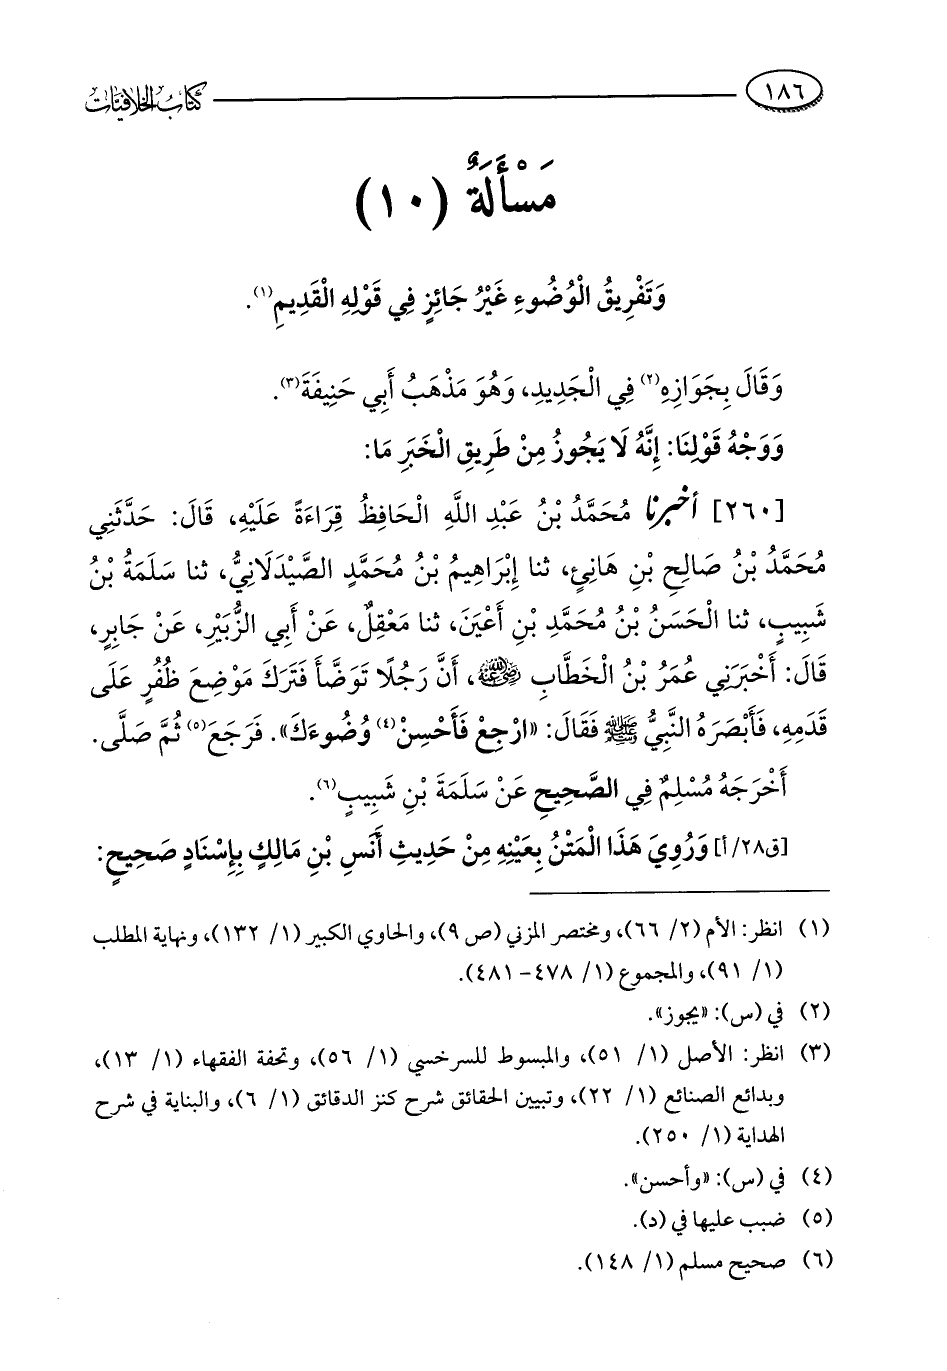 ١٨٦ كتاب الخلافيات
مَسْأَلَةٌ (١٠)
وَتَفْرِيقُ الْوُضُوءِ غَيْرُ جَائِزٍ فِي قَوْلِهِ الْقَدِيمِ(١).
وَقَالَ بِجَوَازِهِ(٢) فِي الْجَدِيدِ، وَهُوَ مَذْهَبُ أَبِي حَنِيفَةَ(٣).
وَوَجْهُ قَوْلِنَا: إِنَّهُ لَا يَجُوزُ مِنْ طَرِيقِ الْخَبَرِ مَا:
[٢٦٠] أخبرنا مُحَمَّدُ بْنُ عَبْدِ اللَّهِ الْحَافِظُ قِرَاءَةً عَلَيْهِ، قَالَ: حَدَّثَنِي
مُحَمَّدُ بْنُ صَالِحِ بْنِ هَانِئٍ، ثنا إِبْرَاهِيمُ بْنُ مُحَمَّدٍ الصَّيْدَلَانِيُّ، ثنا سَلَمَةُ بْنُ
شَبِيبٍ، ثنا الْحَسَنُ بْنُ مُحَمَّدِ بْنِ أَعْيَنَ، ثنا مَعْقِلٌ، عَنْ أَبِي الزُّبَيْرِ، عَنْ جَابِرٍ،
قَالَ: أَخْبَرَنِي عُمَرُ بْنُ الْخَطَّابِ رضي الله عنه، أَنَّ رَجُلًا تَوَضَّأَ فَتَرَكَ مَوْضِعَ ظُفُرٍ عَلَى
قَدَمِهِ، فَأَبْصَرَهُ النَّبِيُّ ﷺ فَقَالَ: «ارْجِعْ فَأَحْسِنْ(٤) وُضُوءَكَ». فَرَجَعَ(٥) ثُمَّ صَلَّى.
أَخْرَجَهُ مُسْلِمٌ فِي الصَّحِيحِ عَنْ سَلَمَةَ بْنِ شَبِيبٍ(٦).
[ق٢٨/ أ] وَرُوِيَ هَذَا الْمَتْنُ بِعَيْنِهِ مِنْ حَدِيثِ أَنَسِ بْنِ مَالِكٍ بِإِسْنَادٍ صَحِيحٍ:
(١) انظر: الأم (٢/ ٦٦)، ومختصر المزني (ص ٩)، والحاوي الكبير (١/ ١٣٢)، ونهاية المطلب
(١/ ٩١)، والمجموع (١/ ٤٧٨- ٤٨١).
(٢) في (س): «يجوز».
(٣) انظر: الأصل (١/ ٥١)، والمبسوط للسرخسي (١/ ٥٦)، وتحفة الفقهاء (١/ ١٣)،
وبدائع الصنائع (١/ ٢٢)، وتبيين الحقائق شرح كنز الدقائق (١/ ٦)، والبناية في شرح
الهداية (١/ ٢٥٠).
(٤) في (س): «وأحسن».
(٥) ضبب عليها في (د).
(٦) صحيح مسلم (١/ ١٤٨).